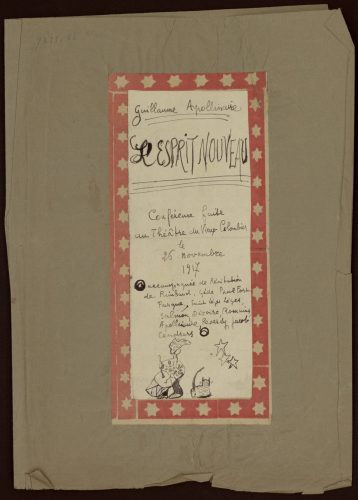 Guillaume Apollinaire
L'ESPRIT NOUVEAU
Conférence faite
au Théâtre du Vieux Colombier
le
26 novembre
1917
accompagnée de Récitation
de Rimbaud, Gide Paul Fort
Fargue, Saint Léger Léger,
Salmon Divoire, Romains
Apollinaire Reverdy, Jacob
Cendrars